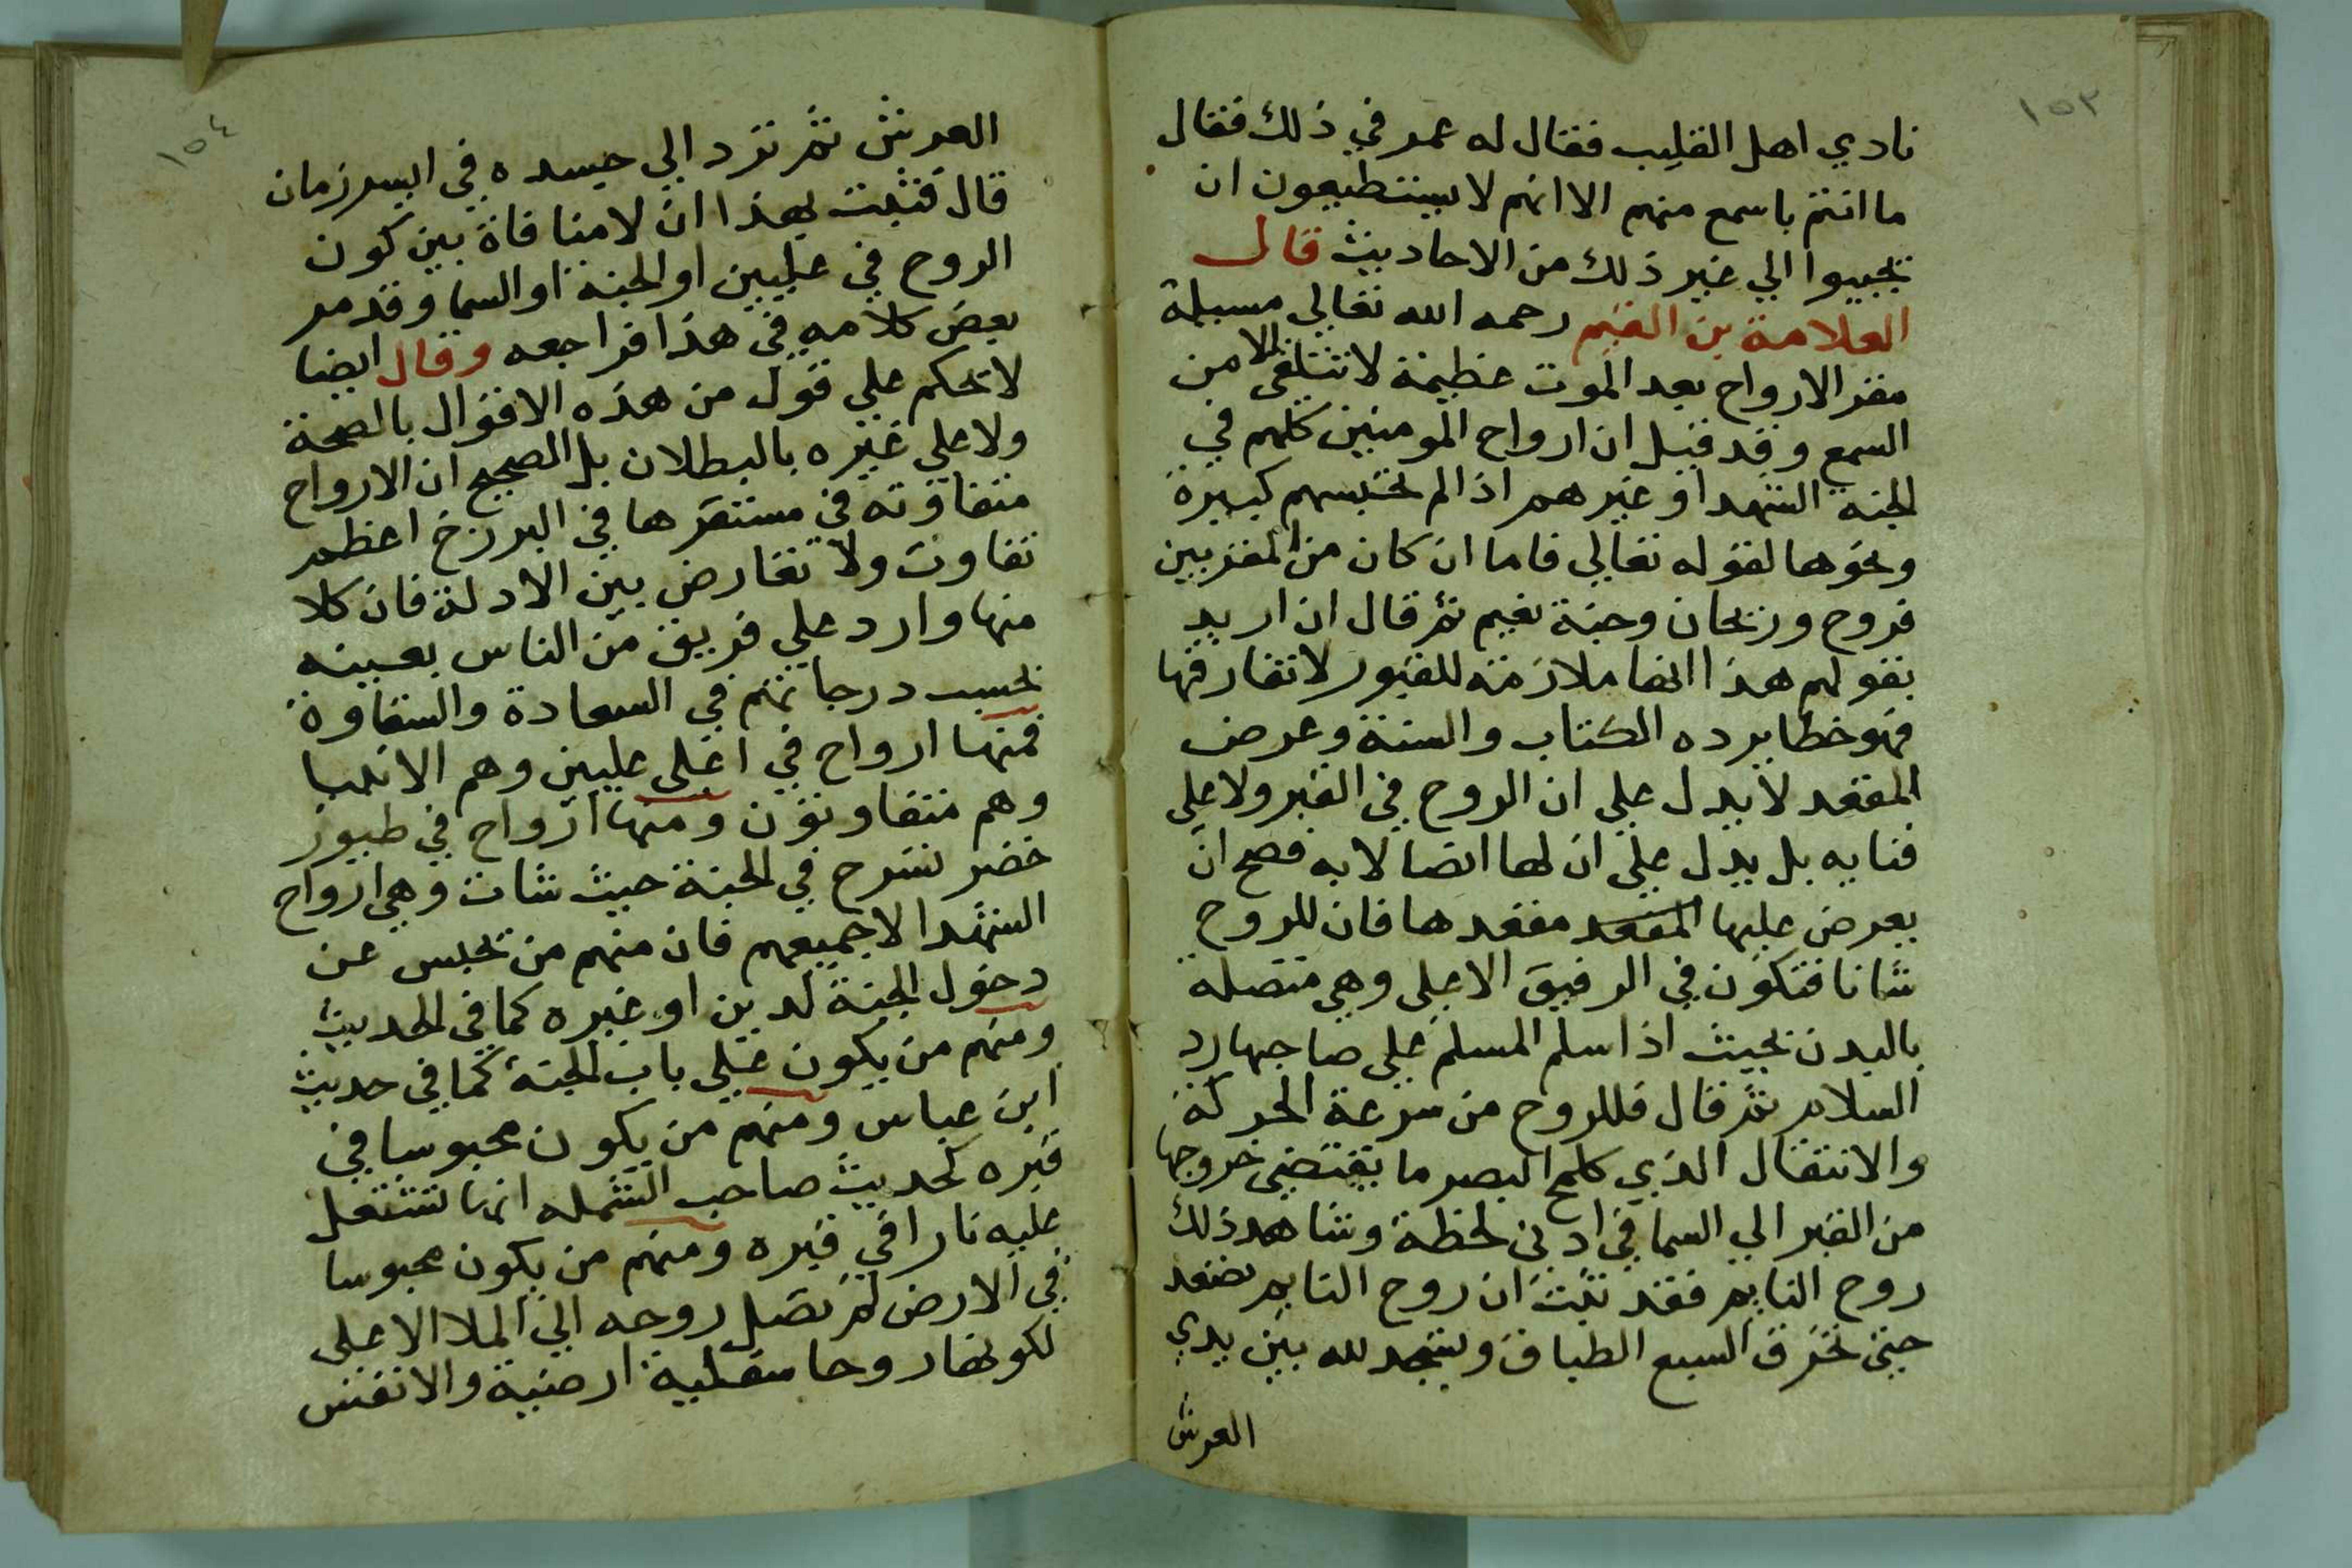 ١٥٣
نادي اهل القليب فقال له عمر في ذلك فقال
ما انتم باسمع منهم الا انهم لا يستطيعون ان
يجيبوا الي غير ذلك من الاحاديث قال
العلامة بن القيم رحمه الله تعالي مسيلة
مقر الارواح بعد الموت عظيمة لا تتلقي الا من
السمع وقد قيل ان ارواح المومنين كلهم في
الجنه الشهدا وغيرهم اذا لم تحبسهم كبيرة
ونحوها لقوله تعالي فاما ان كان من المقربين
فروح وريحان وجنة نعيم ثم قال ان اريد
بقولهم هذا انها ملازمة للقبور لا تفارقها
فهو خطا يرده الكتاب والسنة وعرض
المقعد لا يدل علي ان الروح في القبر ولا علي
فنايه بل يدل علي ان لها اتصالا به فصح ان
يعرض عليها المقعد مقعدها فان للروح
شانا فتكون في الرفيق الاعلي وهي متصلة
بالبدن بحيث اذا سلم المسلم علي صاحبها رد
السلام ثم قال فللروح من سرعة الحركة
والانتقال الذي كلمح البصر ما يقتضي خروجها
من القبر الي السما في ادني لحظة وشاهد ذلك
روح النايم فقد ثبت ان روح النايم تصعد
حتي تخرق السبع الطباق وتسجد لله بين يدي
العرش
١٥٤
العرش ثم ترد الي جسده في ايسر زمان
قال فثبت بهذا ان لا منافاة بين كون
الروح في عليين او الجنة او السما وقد مر
بعض كلامه في هذا فراجعه وقال ايضا
لا تحكم علي قول من هذه الاقوال بالصحة
ولا علي غيره بالبطلان بل الصحيح ان الارواح
متفاوته في مستقرها في البرزخ اعظم
تفاوت ولا تعارض بين الادلة فان كلا
منها وارد علي فريق من الناس بعينه
بحسب درجاتهم في السعادة والشقاوة
فمنها ارواح في اعلي عليين وهم الانبيا
وهم متفاوتون ومنها ارواح في طيور
خضر تسرح في الجنة حيث شات وهي ارواح
الشهدا لا جميعهم فان منهم من تحبس عن
دخول الجنة لدين او غيره كما في الحديث
ومنهم من يكون علي باب الجنة كما في حديث
ابن عباس ومنهم من يكون محبوسا في
قبره كحديث صاحب الشمله انها تشتعل
عليه نارا في قبره ومنهم من يكون محبوسا
في الارض لم تصل روحه الي الملا الاعلي
لكونها روحا سفلية ارضية والانفس